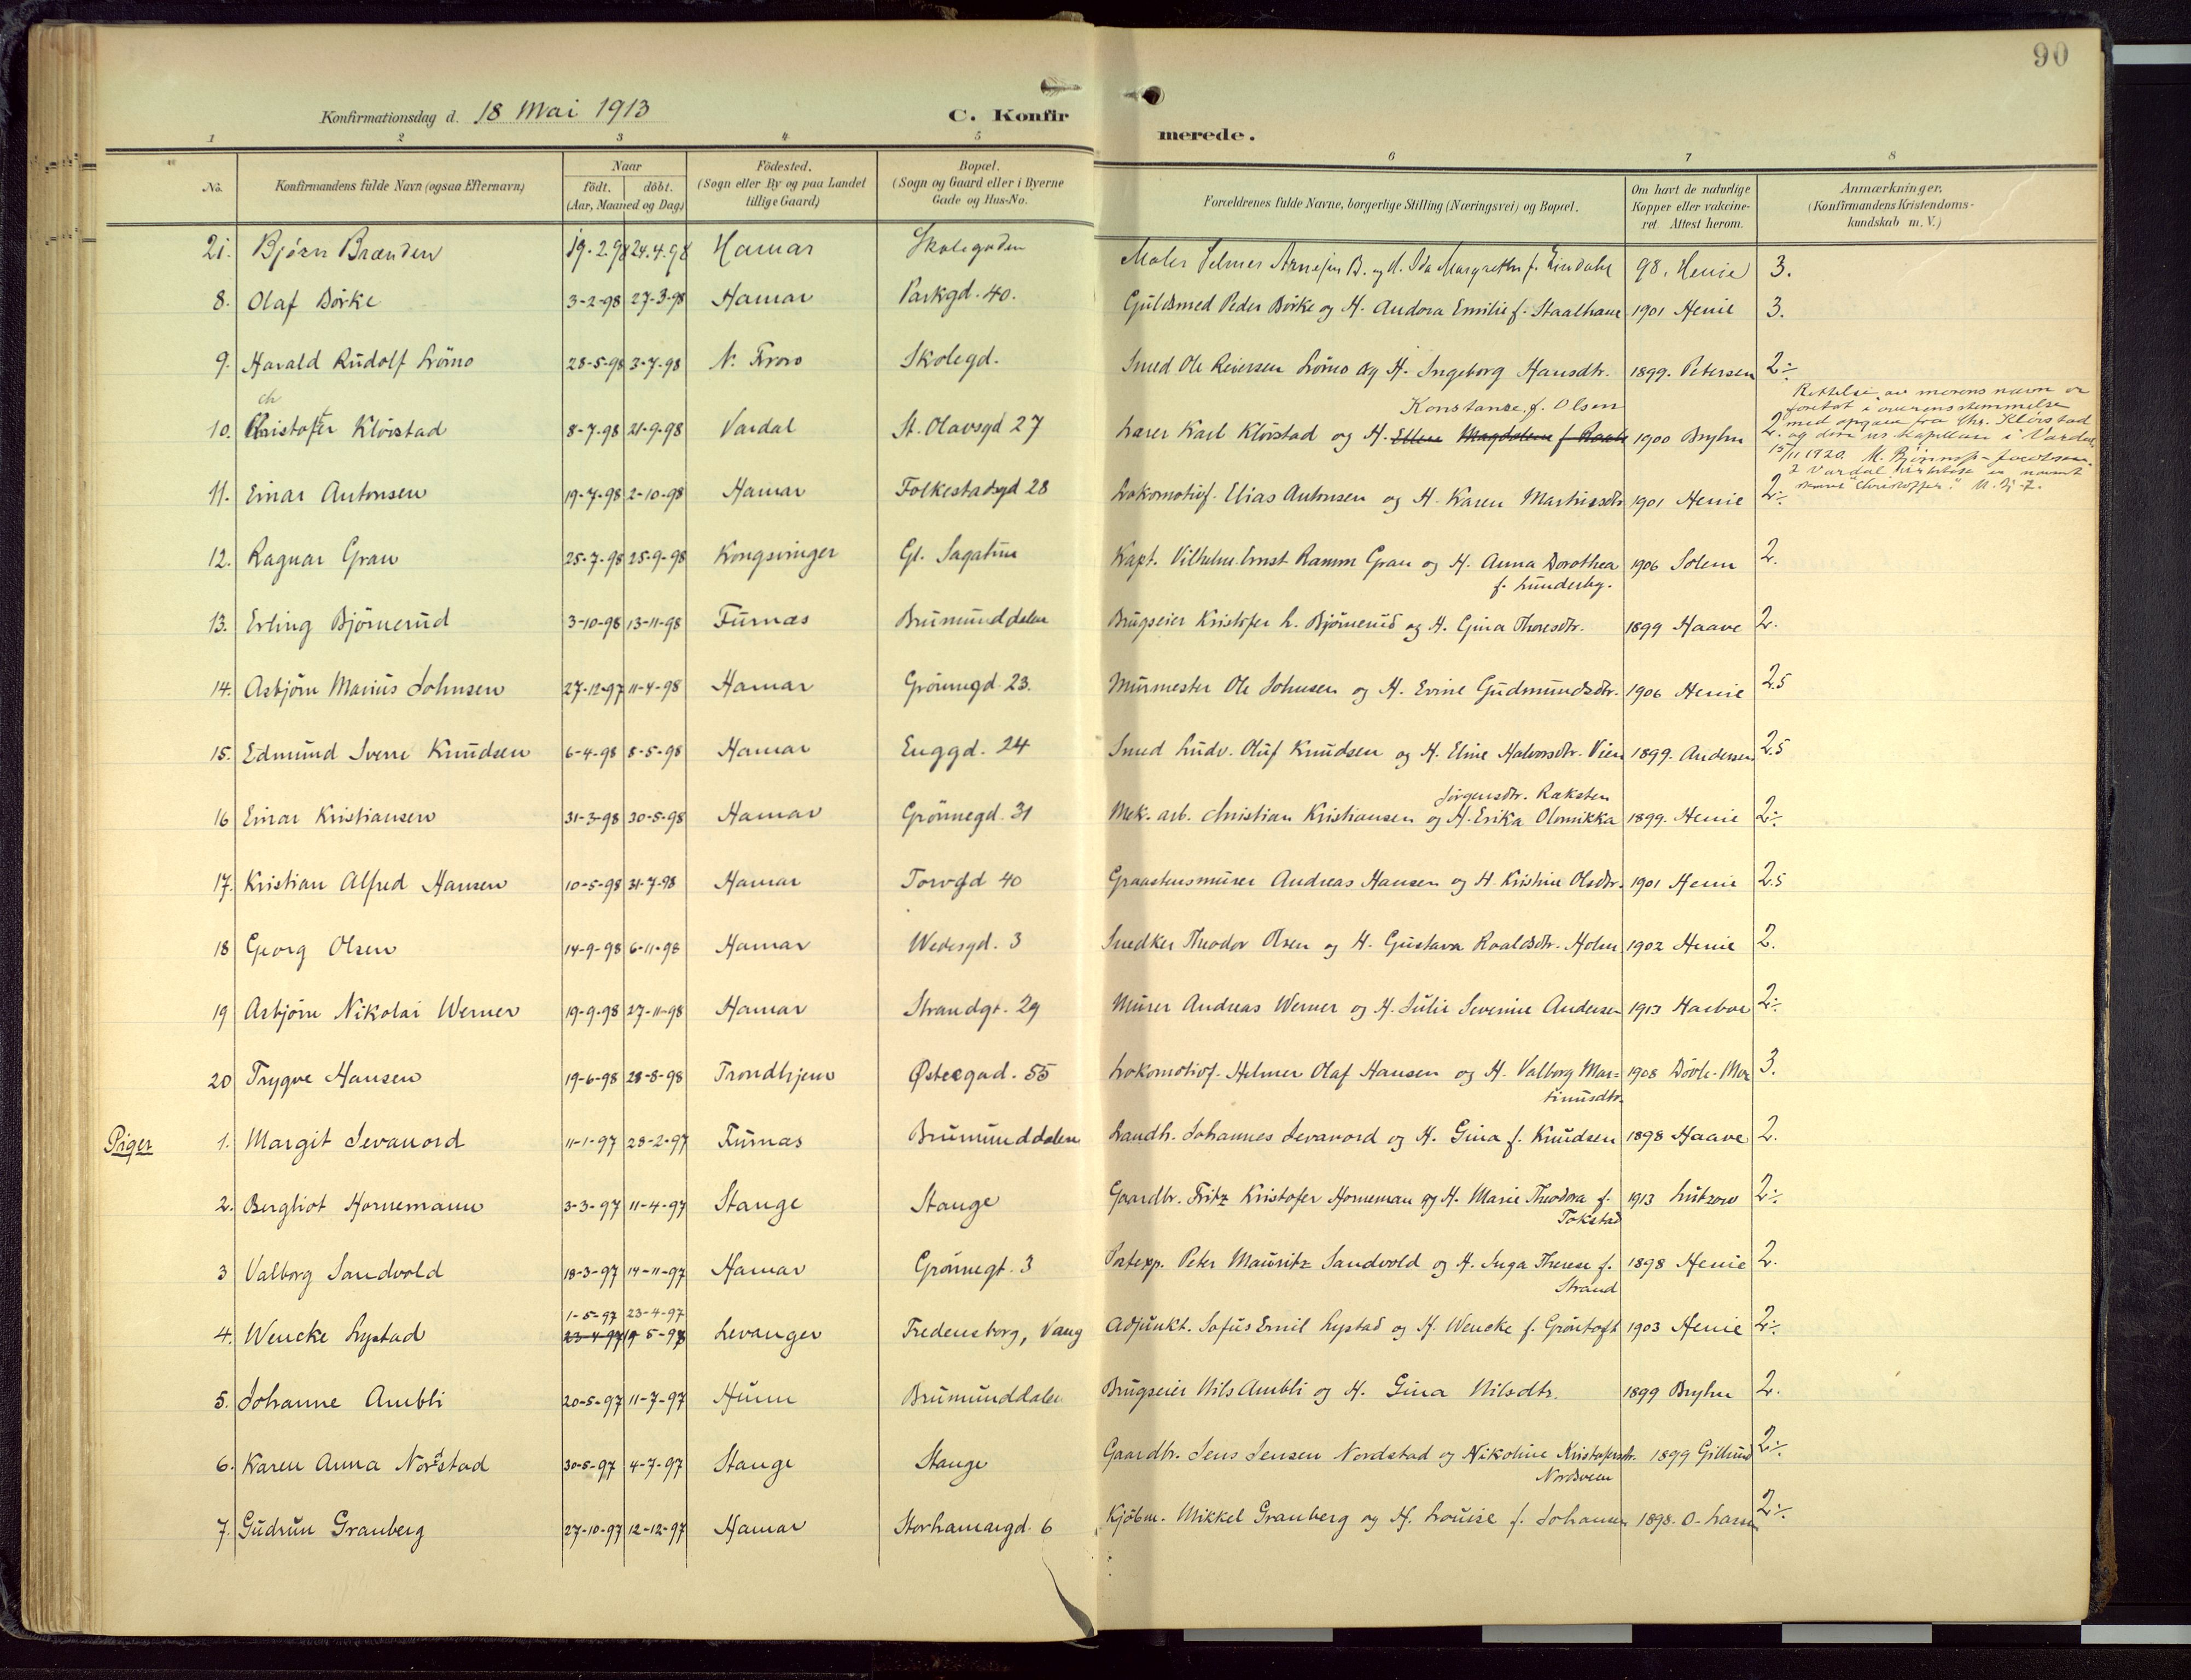 90
Konfirmationsdag d. 18 Mai 1913
C. Konfir merede.
1 2 3 4 5 6 7 8
No. Konfirmandens fulde Navn (ogsaa Efternavn) Naar født. døbt. (Aar, Maaned og Dag) Fødested. (Sogn eller By og paa Landet tillige Gaard) Bopæl. (Sogn og Gaard eller i Byerne Gade og Hus-No. Forældrenes fulde Navne, borgerlige Stilling (Næringsvei) og Bopæl. Om havt de naturlige Kopper eller vakcineret. Attest herom. Anmærkninger. (Konfirmandens Kristendomskundskab m. V.)
21. Bjørn Brænden 19-2-98 24.4.98 Hamar Skolegaden Maler Selmer Arnesen B. og H. Ida Margrethe f. Lindahl 98. Henie 3.
8. Olaf Börke 3-2-98 27-3-98 Hamar Parkgd. 40. Guldsmed Peder Börke og H. Andora Emilie f. Staalhane 1901 Henie 3.
9. Harald Rudolf Lömo 28-5-98 3-7-98 N. Skolegd. Smed Ole Reiersen Lömo og H. Ingeborg Hansdtr. 1899. Petersen 2÷
ch Konstanse f. Olsen
10. Kristofer Klövstad 8-7-98 21-9-98 Vardal St. Olavsgd 27 Lærer Karl Klövstad og H. Ellen Magdalene f. 1900 Bryhn 2.
Rettelse av morens navn er
foretat i overensstemmelse
med opgave fra Chr. Klövstad
og den res. kapellan i Vardal
15/11 1920.
I Vardal kirkebok er navnet
"Christoffer."
11. Einar Antonsen 19-7-98 2-10-98 Hamar Folkestadsgd 28 Lokomotivf. Elias Antonsen og H. Karen Martinsdtr 1901 Henie 2÷
12. Ragnar Gran 25-7-98 25-9-98 Kongsvinger Gl. Sagatun Kapt. Vilhelm Ernst Ramm Gran og H. Anna Dorothea 1906 Solem 2.
f. Lunderby.
13. Erling Björnerud 3-10-98 13-11-98 Furnæs Brumunddalen Brugseier Kristofer L. Björnerud og H. Gina Thoresdtr. 1899 Haave 2.
14. Asbjörn Marius Johnsen 27-12-97 11-4-98 Hamar Grönnegd 23. Murmester Ole Johnsen og H. Evine Gudmundsdtr. 1906 Henie 2.5
15. Edmund Sverre Knudsen 6-4-98 8-5-98 Hamar Enggd. 24 Smed Ludv. Oluf Knudsen og H. Eline Halvorsdtr. Vien 1899. Andersen 2.5
Jörgensdtr. Raksten
16 Einar Kristiansen 31-3-98 30-5-98 Hamar Grönnegd. 31 Mek. arb. Christian Kristiansen og H. Erika Olomikka 1899. Henie 2÷
17. Kristian Alfred Hansen 10-5-98 31-7-98 Hamar Torvgd 40 Graastensmurer Andreas Hansen og H. Kristine Olsdtr. 1901 Henie 2.5
18 Georg Olsen 14-9-98 6-11-98 Hamar Wedesgd. 3 Snedker Theodor Olsen og H. Gustava Roaldsdtr. Holm 1902 Henie 2.
19 Asbjörn Nikolai Werner 19-9-98 27-11-98 Hamar Strandgt. 29 Murer Andreas Werner og H. Julie Severine Andersen 1913 Harboe 2÷
20 Trygve Hansen 19-6-98 28-8-98 Trondhjem Østregad. 55 Lokomotivf. Helmer Olaf Hansen og H. Valborg Mar= 1908 3.
tinusdtr.
Piger 1. Margit Sevanord 11-1-97 28-2-97 Furnæs Brumunddalen Landh. Johannes Sevanord og H. Gina f. Knudsen 1898 Haave 2.
2. Bergliot Hornemann 3-3-97 11-4-97 Stange Stange Gaardbr. Fritz Kristofer Horneman og H. Marie Theodora f. 1913 Lützow 2÷
Tokstad
3 Valborg Sandvold 18-3-97 14-11-97 Hamar Grönnegt. 3 Postexp. Peter Mauritz Sandvold og H. Inga Therese f. 1898 Henie 2.
Strand
1-5-97 23-4-97
4. Wencke Lystad 23-4-97 19-5-97 Levanger Fredensborg, Vang Adjunkt. Sofus Emil Lystad og H. Wencke f. Gröntoft 1903 Henie 2÷
5. Johanne Ambli 20-5-97 11-7-97 Hunn Brumunddalen Brugseier Nils Ambli og H. Gina Nilsdtr. 1899 Bryhn 2.
6. Karen Anna Nordstad 30-5-97 4-7-97 Stange Stange Gaardbr. Jens Jensen Nordstad og Nikoline Kristofersdtr. 1899 Gillund 2÷
Nordsveen
7. Gudrun Granberg 27-10-97 12-12-97 Hamar Storhamargd. 6 Kjöbm. Mikkel Granberg og H. Louise f. Johansen 1898. O. Larsen 2÷